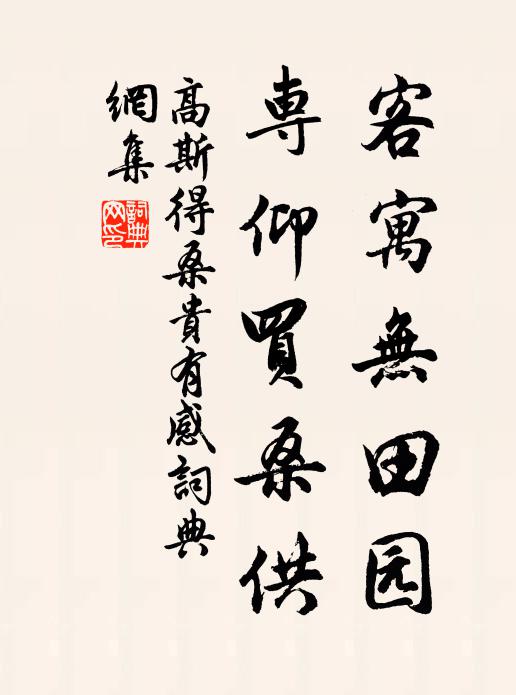 客寓無田园
専仰買桑供
高斯得桑貴有感詞典
網集
詞典網印